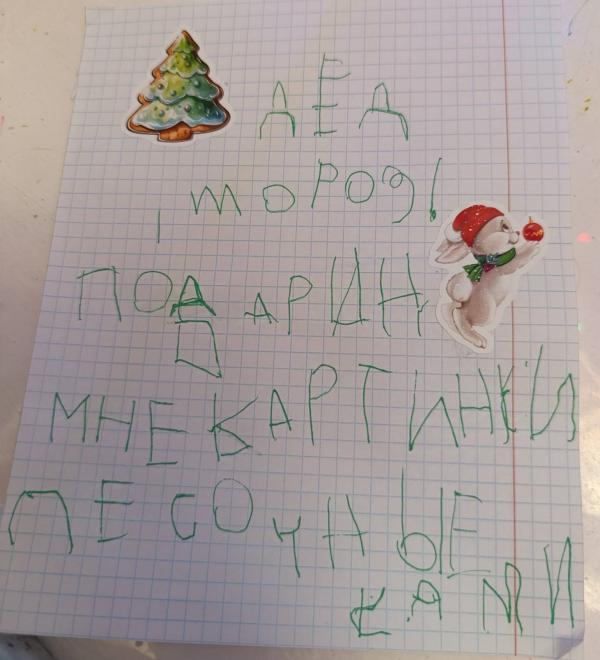 ДЕД
МОРОЗ!
ПОДАРИН
МНЕ КАРТИНКИ
ПЕСОЧНЫЕ
КАМИ